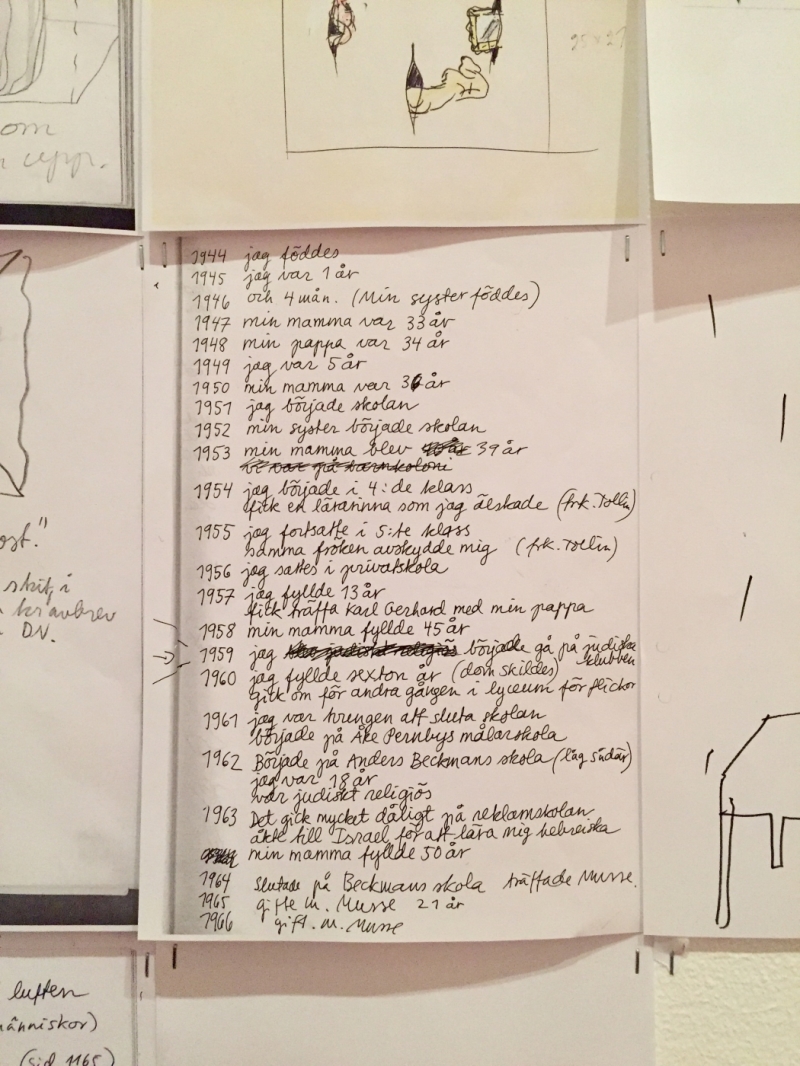 om
25 x 27
1944 jag föddes
1945 jag var 1 år
1946 och 4 mån. (Min syster föddes)
1947 min mamma var 33 år
1948 min pappa var 34 år
1949 jag var 5 år
1950 min mamma var 36 år
1951 jag började skolan
1952 min syster började skolan
1953 min mamma blev 39 år
vi var på barnkoloni
1954 jag började i 4:de klass
fick en lärarinna som jag älskade (frk. Tollin)
1955 jag fortsatte i 5:te klass
samma fröken avskydde mig (frk. Tollin)
1956 jag sattes i privatskola
1957 jag fyllde 13 år
fick träffa Karl Gerhard med min pappa
1958 min mamma fyllde 45 år
1959 jag började gå på judiska
klubben
1960 jag fyllde sexton år (dom skildes)
gick om för andra gången i lyceum för flickor
1961 jag var tvungen att sluta skolan
började på Åke Pernbys målarskola
1962 Började på Anders Beckmans skola (låg Södär)
jag var 18 år
var judiskt religiös
1963 Det gick mycket dåligt på reklamskolan
åkte till Israel för att lära mig hebreiska
min mamma fyllde 50 år
1964 slutade på Beckmans skola träffade Musse.
1965 gifte m. Musse 21 år
1966 gift. m. Musse
ost."
skit i
kravbrev
DN.
luften
människor)
(sid 1165)